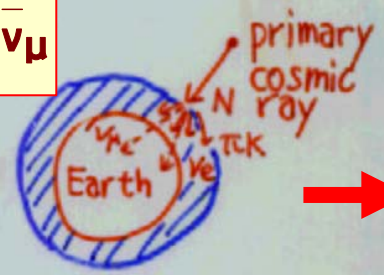 ν̅μ
primary
cosmic
ray
N
πK
νμ
νe
Earth